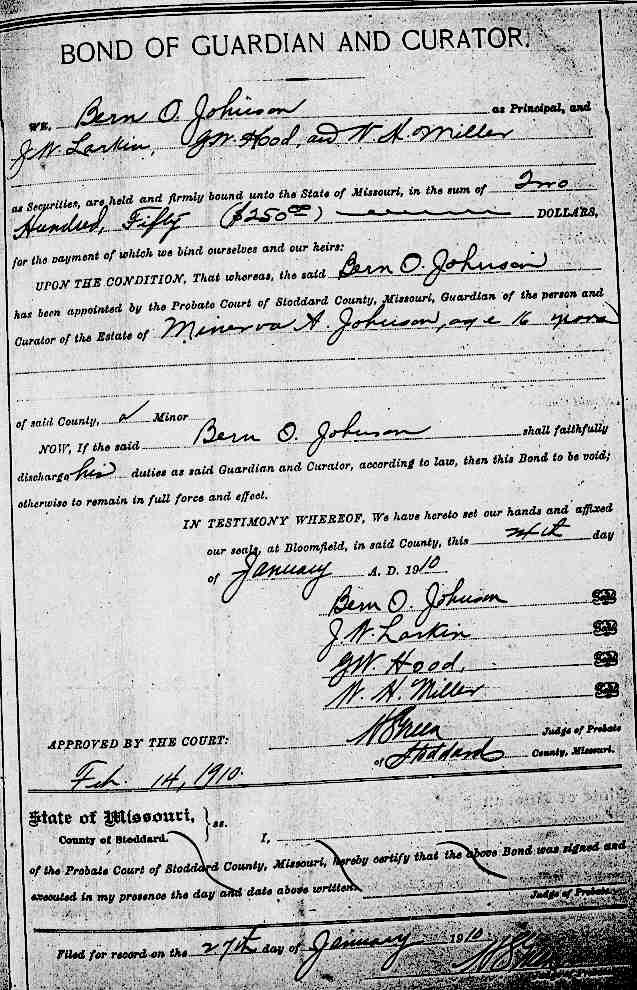 BOND OF GUARDIAN AND CURATOR.
WE, Bern O. Johnson as Principal, and
J. W. Larkin, G W. Hood, and W. H. Miller
as Securities, are held and firmly bound unto the State of Missouri, in the sum of Two
Hundred, Fifty ($250 00) DOLLARS,
for the payment of which we bind ourselves and our heirs:
UPON THE CONDITION, That whereas, the said Bern O. Johnson
has been appointed by the Probate Court of Stoddard County, Missouri, Guardian of the person and
Curator of the Estate of Minerva A. Johnson, age 16 years
of said County, a Minor
NOW, If the said Bern O. Johnson shall faithfully
discharge his duties as said Guardian and Curator, according to law, then this Bond to be void;
otherwise to remain in full force and effect.
IN TESTIMONY WHEREOF, We have hereto set our hands and affixed
our seals, at Bloomfield, in said County, this day
of January A. D. 1910
Bern O. Johnson Seal
J. W. Larkin Seal
G W. Hood, Seal
W. H. Miller Seal
Judge of Probate
APPROVED BY THE COURT:
of Stoddard County, Missouri.
Feb. 14, 1910.
State of Missouri, } ss.
County of Stoddard.
I,
of the Probate Court of Stoddard County, Missouri, hereby certify that the above Bond was signed and
executed in my presence the day and date above written.
Judge of Probate.
Filed for record on the 27th day of January 1910
Judge of Probate.